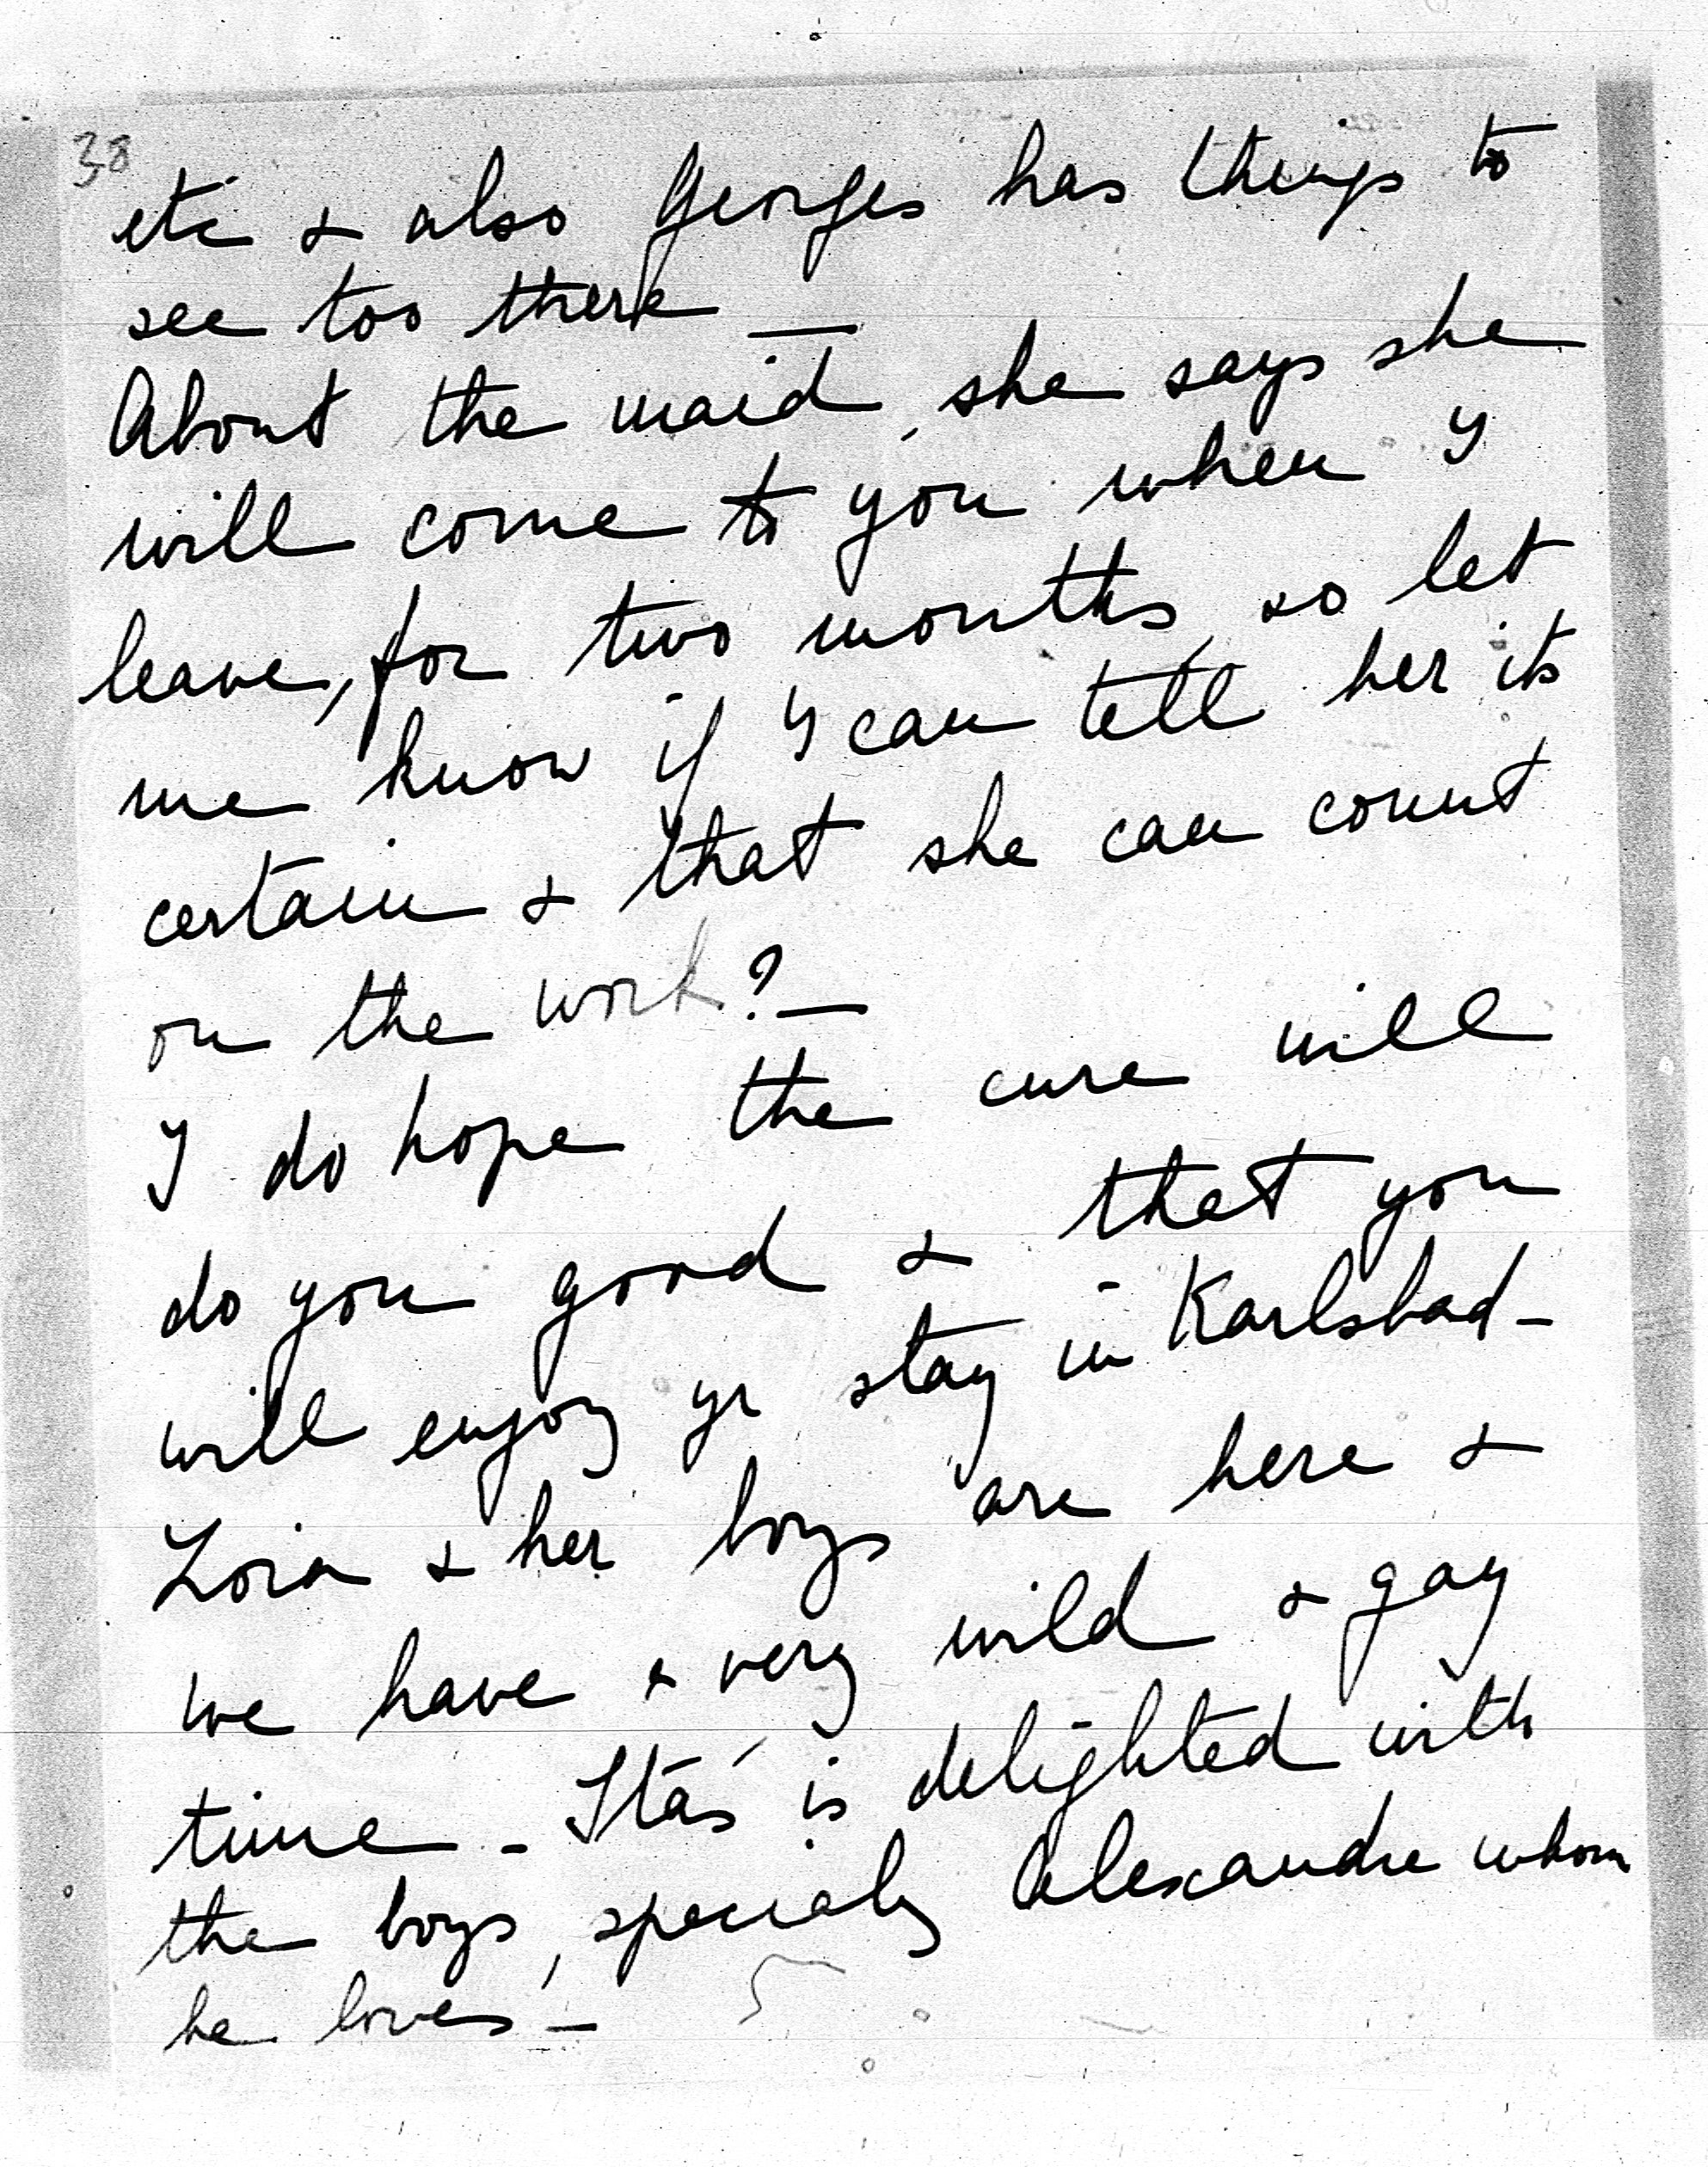 38
etc & also Georges has things to
see too there —
About the maid, she says she
will come to you when I
leave, for two months, so let
me know if I can tell her its
certain & that she can count
on the work? —
I do hope the cure will
do you good & that you
will enjoy yr stay in Karlsbad -
& her boys are here &
we have a very wild & gay
time - is delighted with
the boys, specialy Alexandre whom
he loves -